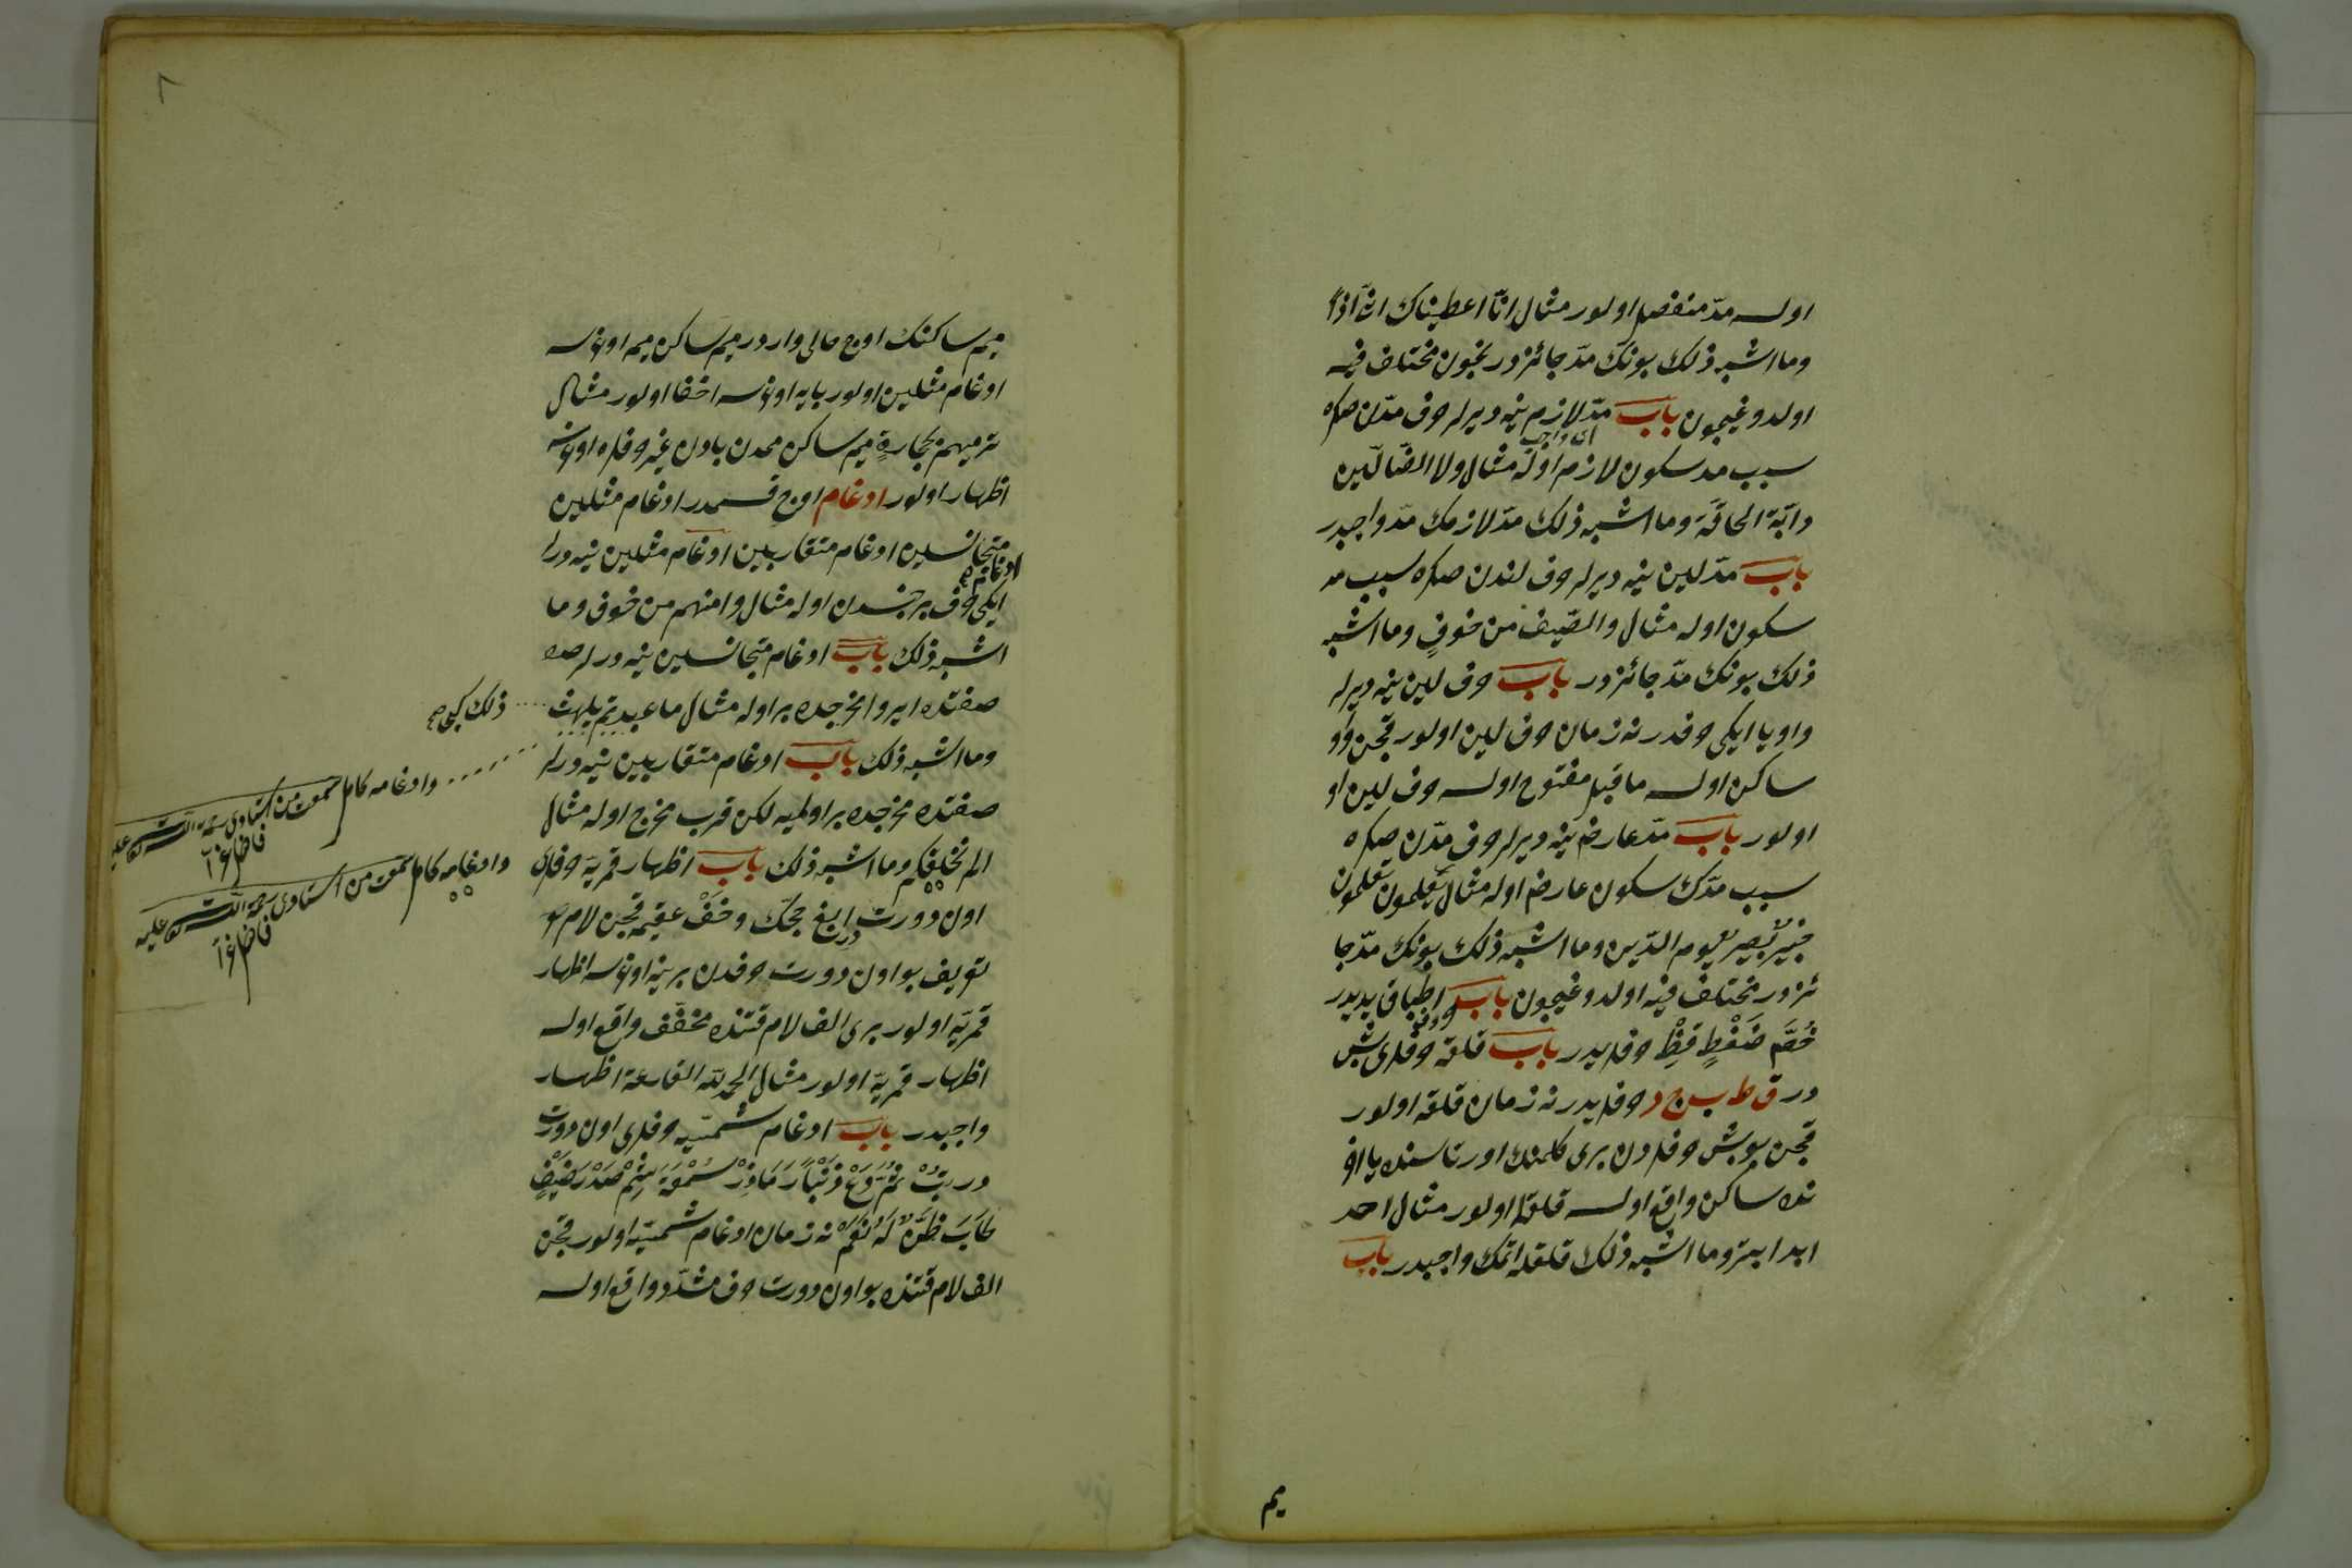 اولسه مدّ منفصل اولور مثال انّا اعطيناك
وما اشبه ذلك بونك مدّ جائزدر نچون مختلف فيه
اولدوغيچون باب مدّ لازم نيه ديرلر حرف مدّدن صكره
سبب مد سكون لازم اوله مثال ولا الضالّين
دابّة الحاقّة وما اشبه ذلك مدّ لازمك مدّ واجبدر
باب مدّ لين نيه ديرلر حرف لندن صكره سبب مد
سكون اوله مثال والصّيف من خوفٍ وما اشبه
ذلك بونك مدّ جائزدر باب حرف لين نيه ديرلر
واو يا ايكى حرفدر نه زمان حرف لين اولور قچن واو
ساكن اولسه ماقبل مفتوح اولسه حرف لين او
اولور باب مدّ عارض نيه ديرلر حرف مدّدن صكره
سبب مدّك سكون عارض اوله مثال يعلمون تعلمون
خبير بصير يوم الدّين وما اشبه ذلك بونك مدّ جا
ئزدر مختلف فيه اولدوغيچون باب اطباق يديدر
خُصَّ ضَغْطٍ قِظْ حرفلريدر باب قلقله حرفلرى بش
در ق ط ب ج د حرفلريدر نه زمان قلقله اولور
قچن بو بش حرفلردن برى كلمنك اورتاسنده يا اخر
نده ساكن واقع اولسه قلقله اولور مثال احد
ابدا ابتر وما اشبه ذلك قلقله اتمك واجبدر باب
ميم
٨
ميم ساكنك اوچ حالى واردر ميم ساكن ميمه اوغرسه
ادغام مثلين اولور بايه اوغرسه اخفا اولور مثال
ترميهم بحجارةٍ ميم ساكن ميمدن بادن غير حرفلره اوغرسه
اظهار اولور ادغام اوچ قسمدر ادغام مثلين
ادغام متجانسين ادغام متقاربين ادغام مثلين نيه درلر
ايكى حرف بر جنسدن اوله مثال وامنهم من خوف وما
اشبه ذلك باب ادغام متجانسين نيه درلر
صفتده ايرو مخرجده بر اوله مثال ما عبدتم يلهث
ذلك كبى صح
وما اشبه ذلك باب ادغام متقاربين نيه درلر
صفتده مخرجده بر اولميه لكن قرب مخرج اوله مثال
الم نخلقكم وما اشبه ذلك باب اظهار قمريّه حرفلرى
اون دورت در ابغ حجك وخف عقيمه قچن لام
تعريف بو اون دورت حرفدن برينه اوغرسه اظهار
قمريّه اولور برى الف لام قتنده مخفّف واقع اولسه
اظهار قمريّه اولور مثال الحمد للّه القارعة اظهار
واجبدر باب ادغام شمسيّه حرفلرى اون دورت
طَابَ ظَنّ لَهُ نه زمان ادغام شمسيّه اولور قچن
الف لام قتنده بو اون دورت حرف مشدّد واقع اولسه
وادغامه كامل سمعت من استادى رحمة اللّه تعالى عليه
فاضل اغا
وادغامه كامل سمعت من استادى رحمة اللّه تعالى عليه
فاضل اغا